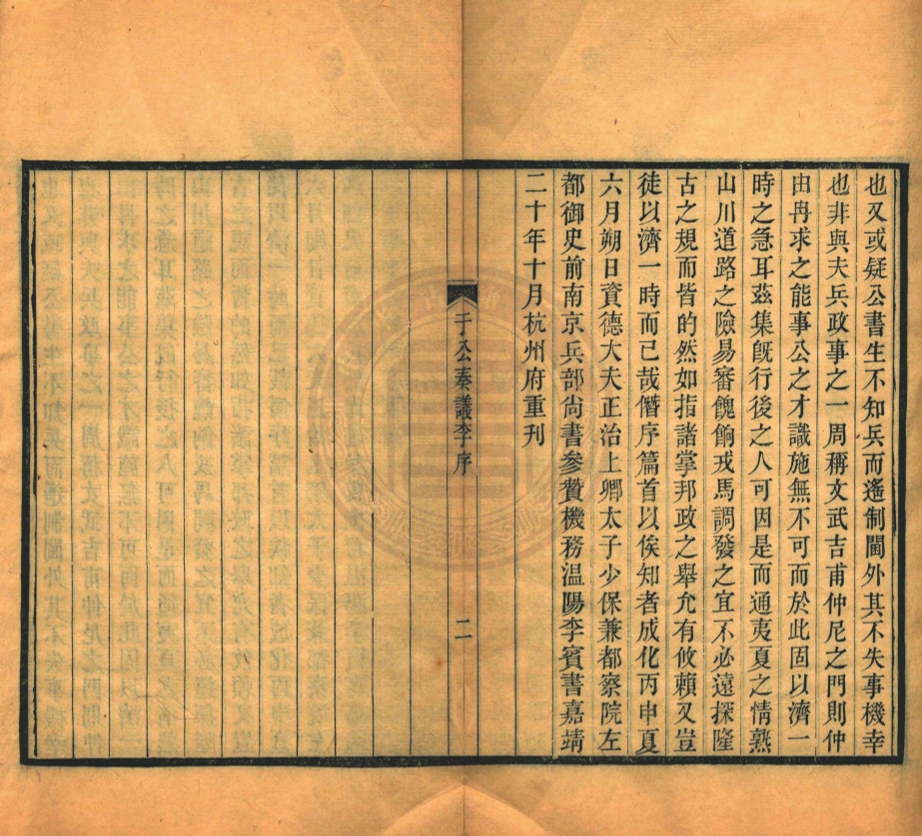 也又或疑公書生不知兵而遙制閫外其不失事機幸
也非與夫兵政事之一周稱文武吉甫仲尼之門則仲
由冉求之能事公之才識施無不可而於此固以濟一
時之急耳茲集旣行後之人可因是而通夷夏之情熟
山川道路之險易審餽餉戎馬調發之宜不必遠探隆
古之規而皆的然如指諸掌邦政之舉允有攸賴又豈
徒以濟一時而已哉僭序篇首以俟知者成化丙申夏
六月朔日資德大夫正治上卿太子少保兼都察院左
都御史前南京兵部尚書參贊機務溫陽李賓書嘉靖
二十年十月杭州府重刊
于公奏議李序
二